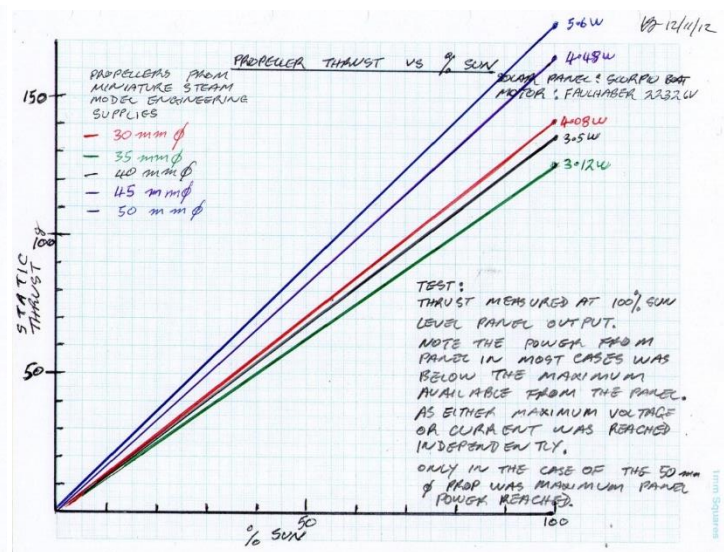 12/11/12
PROPELLER THRUST VS % SUN
SOLAR PANEL: SCORPIO BOAT
MOTOR: FAULHABER 22326V
PROPELLERS FROM
MINIATURE STEAM
MODEL ENGINEERING
SUPPLIES
30 mm ϕ
35 mm ϕ
40 mm ϕ
45 mm ϕ
50 mm ϕ
5.6W
4.48W
4.08W
3.5W
3.12W
150
100
50
STATIC
THRUST g
TEST:
THRUST MEASURED AT 100% SUN
LEVEL PANEL OUTPUT.
NOTE THE POWER FROM
PANEL IN MOST CASES WAS
BELOW THE MAXIMUM
AVAILABLE FROM THE PANEL.
AS EITHER MAXIMUM VOLTAGE
OR CURRENT WAS REACHED
INDEPENDENTLY.
ONLY IN THE CASE OF THE 50 mm
ϕ PROP WAS MAXIMUM PANEL
POWER REACHED.
50
100
% SUN
1mm Squares